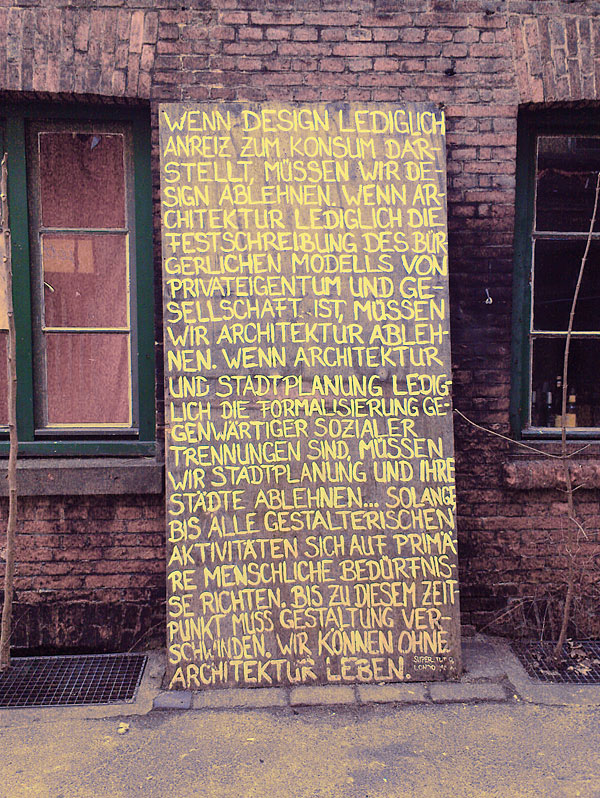 WENN DESIGN LEDIGLICH
ANREIZ ZUM KONSUM DAR-
STELLT, MÜSSEN WIR DE-
SIGN ABLEHNEN. WENN AR-
CHITEKTUR LEDIGLICH DIE
FESTSCHREIBUNG DES BÜR-
GERLICHEN MODELLS VON
PRIVATEIGENTUM UND GE-
SELLSCHAFT IST, MÜSSEN
WIR ARCHITEKTUR ABLEH-
NEN. WENN ARCHITEKTUR
UND STADTPLANUNG LEDIG-
LICH DIE FORMALISIERUNG GE-
GENWÄRTIGER SOZIALER
TRENNUNGEN SIND, MÜSSEN
WIR STADTPLANUNG UND IHRE
STÄDTE ABLEHNEN... SOLANGE
BIS ALLE GESTALTERISCHEN
AKTIVITÄTEN SICH AUF PRIMÄ-
RE MENSCHLICHE BEDÜRFNIS-
SE RICHTEN. BIS ZU DIESEM ZEIT-
PUNKT MUSS GESTALTUNG VER-
SCHWINDEN. WIR KÖNNEN OHNE
ARCHITEKTUR LEBEN.